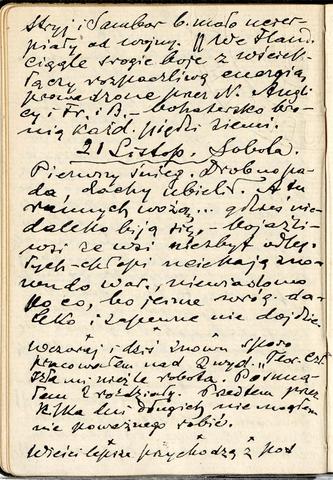 Stryj i Sambor b. mało ucier-
piały od wojny. || We Fland.
ciągle srogie boje z wściek-
łą, rozpaczliwą energią,
prowadzone przez N. Angli-
cy i Fr. i B. – bohatersko bro-
nią każd. piędzi ziemi.
21 Listop. Sobota.
Pierwszy śnieg. Drobno pa-
da, dachy ubielił. A tu
rannych wożą... gdzieś nie-
daleko biją się, –
wsi ze wsi niezbyt odleg-
łych – chłopi uciekają zno-
wu do War., niewiadomo
po co, bo jeszcze wróg da-
leko i zapewne nie dojdzie.
Wczoraj i dziś znowu sporo
pracowałem nad 2 wyd.
robota.
łem 2 rozdziały. Przedtem przez
kilka dni długich nie mogłem
nic poważnego robić.
Wieści lepsze przychodzą z pod